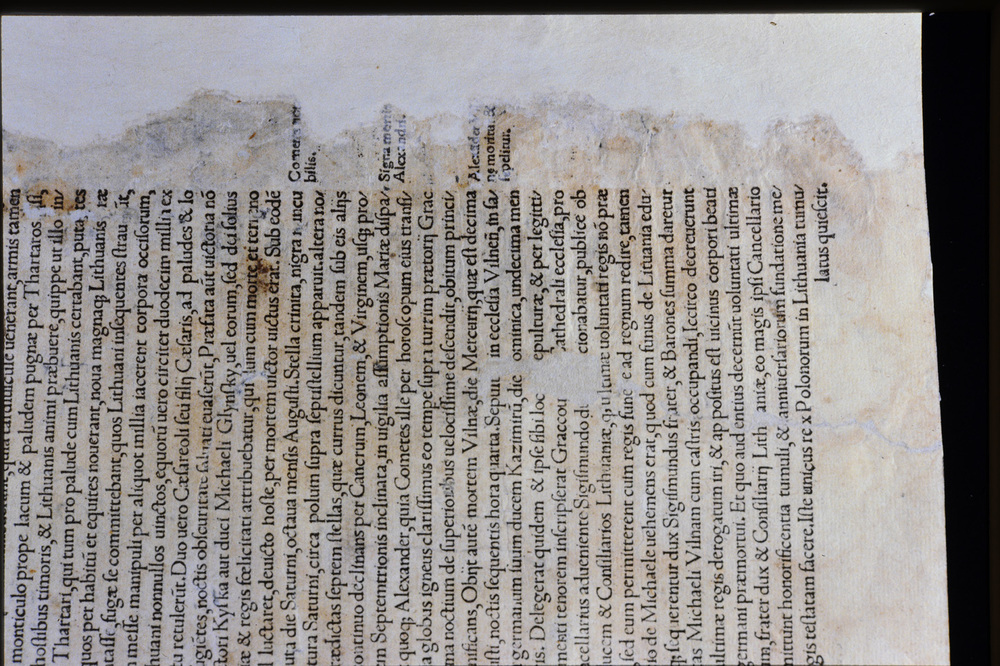 monticulo prope lacum & paludem pugnæ per Thartaros
hoſtibus timoris, & Lithuanis animi præbuere, quippe ut illo in/
Thartari, qui tum pro palude cum Lithuanis certabant, puta
quos per habitũ et equites nouerant, noua magnaq; Lithuanis
fugæ ſe committebant, quos Lithuani inſequentes
meſſe manipuli per aliquot millia iacerent corpora occiſorum,
huani nonnullos uinctos, equorũ uero circiter duodecim millia ex
retulerũt. Duo uero Cæſareoli ſeu filij Cæſaris, ad paludes & lo
noctis obſcuritate Præſtita aũt uictoria nõ
tori Kyſſka aut duci Michaeli Glynſky, uel eorum, ſed dei ſolius
æ & regis fœlicitati attribuebatur,
luctaret, deuicto hoſte, per mortem uictor uictus erat. Sub eodẽ
ta die Saturni, octaua menſis Auguſti. Stella crinita, nigra incu
tura Saturni, circa polum ſupra ſepuſtellium apparuit, altera no/
ædictas ſeptem ſtellas, quæ currus dicuntur, tandem ſub eis alijs
ontinuo declinans per Cancrum, Leonem, & Virginem, uſq; pro/
m Septentrionis inclinata, in uigilia aſſumptionis Mariæ diſpa/
quoq; Alexander, quia Cometes ille per horoſcopum eius tranſi/
a globus igneus clariſſimus eo tempe ſupra turrim prætorij Grac
ma noctum de ſuperioribus uelociſſime deſcendit, obitum princi/
nificans. Obijt autẽ mortem Vilnæ, die Mercurij, quæ eſt decima
ſti, noctis ſequentis hora quarta. Sepul in eccleſia Vilneñ, in ſa/
germanum ſuum ducem Kazimirũ, die ominica, undecima men
is. Delegerat quidem & ipſe ſibi loc epulturæ, & per legitti/
menti tenorem inſcripſerat Graccou athedrali eccleſia, pro
cellarius adueniente Sigiſmundo di ctionabatur, publice ob
ucem & Conſiliarios Lithuaniæ, uoluntati regis nõ præ
ſed eum permitterent cum regis ad regnum redire, tamen
io de Michaele uehemens erat, quod cum funus de Lituania edu
ſi ſequerentur dux Sigiſmundus frater, & Barones ſumma daretur
as Michaeli Vilnam cum caſtris occupandi, Iccirco decreuerunt
ultimæ regis derogatum iri, & appoſitus eſt uicinus corpori beati
germani præmortui. Et quo audentius decernit uoluntati ultimæ
m, frater dux & Conſiliarij Lith aniæ, eo magis ipſi Cancellario
mittunt honorificentia tumuli, & anniuerſariorum fundatione me/
gis teſtatam facere. Iſte unicus rex Polonorum in Lithuania tumu/
latus quieſcit.
Cometa
bilis.
Signa mortis
Alexandri.
Alexander
ne moritur &
ſepelitur.